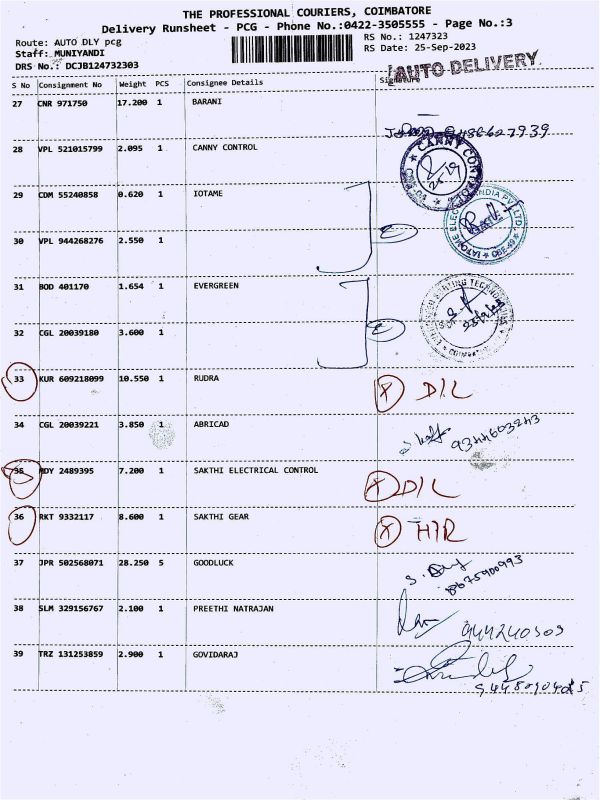 THE PROFESSIONAL COURIERS, COIMBATORE
Delivery Runsheet - PCG - Phone No.:0422-3505555 - Page No.:3
Route: AUTO DLY pcg
RS No.: 1247323
Staff: MUNIYANDI
RS Date: 25-Sep-2023
DRS No.: DCJB124732303
AUTO DELIVERY
S No Consignment No Weight PCS Consignee Details Signature
27 CNR 971750 17.200 1 BARANI
28 VPL 521015799 2.095 1 CANNY CONTROL
29 CDM 55240858 0.620 1 IOTAME
30 VPL 944268276 2.550 1
31 BOD 401170 1.654 1 EVERGREEN
32 CGL 20039180 3.600 1
33 KUR 609218099 10.550 1 RUDRA D/L
34 CGL 20039221 3.850 1 ABRICAD
9344603243
35 MDY 2489395 7.200 1 SAKTHI ELECTRICAL CONTROL D/L
36 RKT 9332117 8.600 1 SAKTHI GEAR
37 JPR 502568071 28.250 5 GOODLUCK
8675900993
38 SLM 329156767 2.100 1 PREETHI NATRAJAN
39 TRZ 131253859 2.900 1 GOVIDARAJ